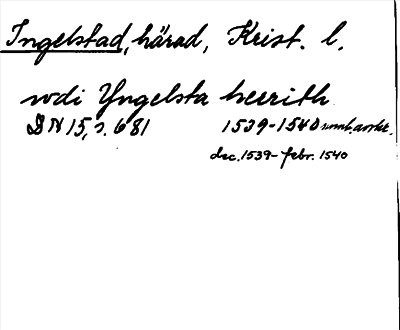 Ingelstad, härad, Krist. l.
wdi Yngelsta heerith
DN 15, s. 681 1539-1540
dec. 1539- febr. 1540